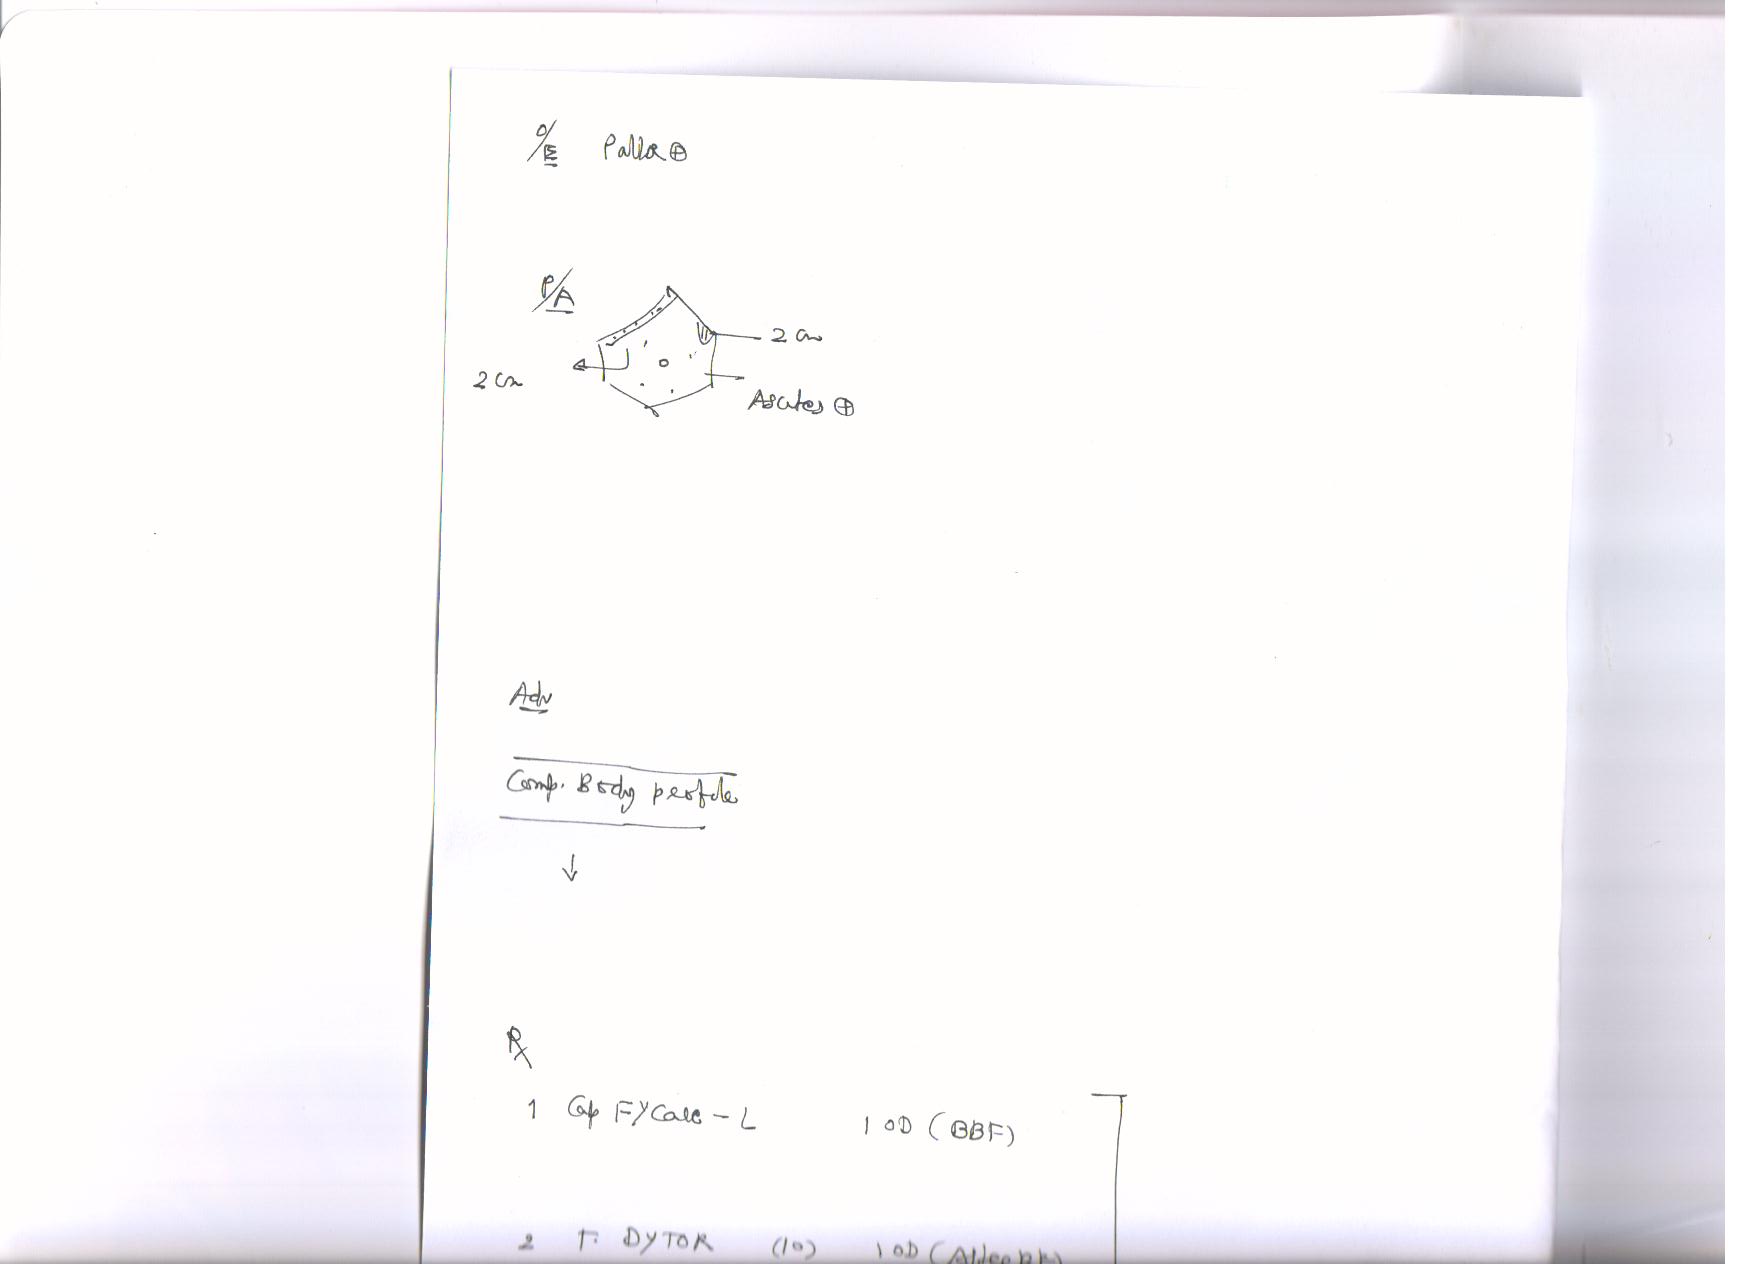 O/E Pallor ⊕
P/A
2 cm
2 cm
Ascites ⊕
Adv
Comp. Body profile
↓
Rx
1 Cap FYCare - L 1 OD (BBF)
2 T. DYTOR (10) 1 OD (After BF)